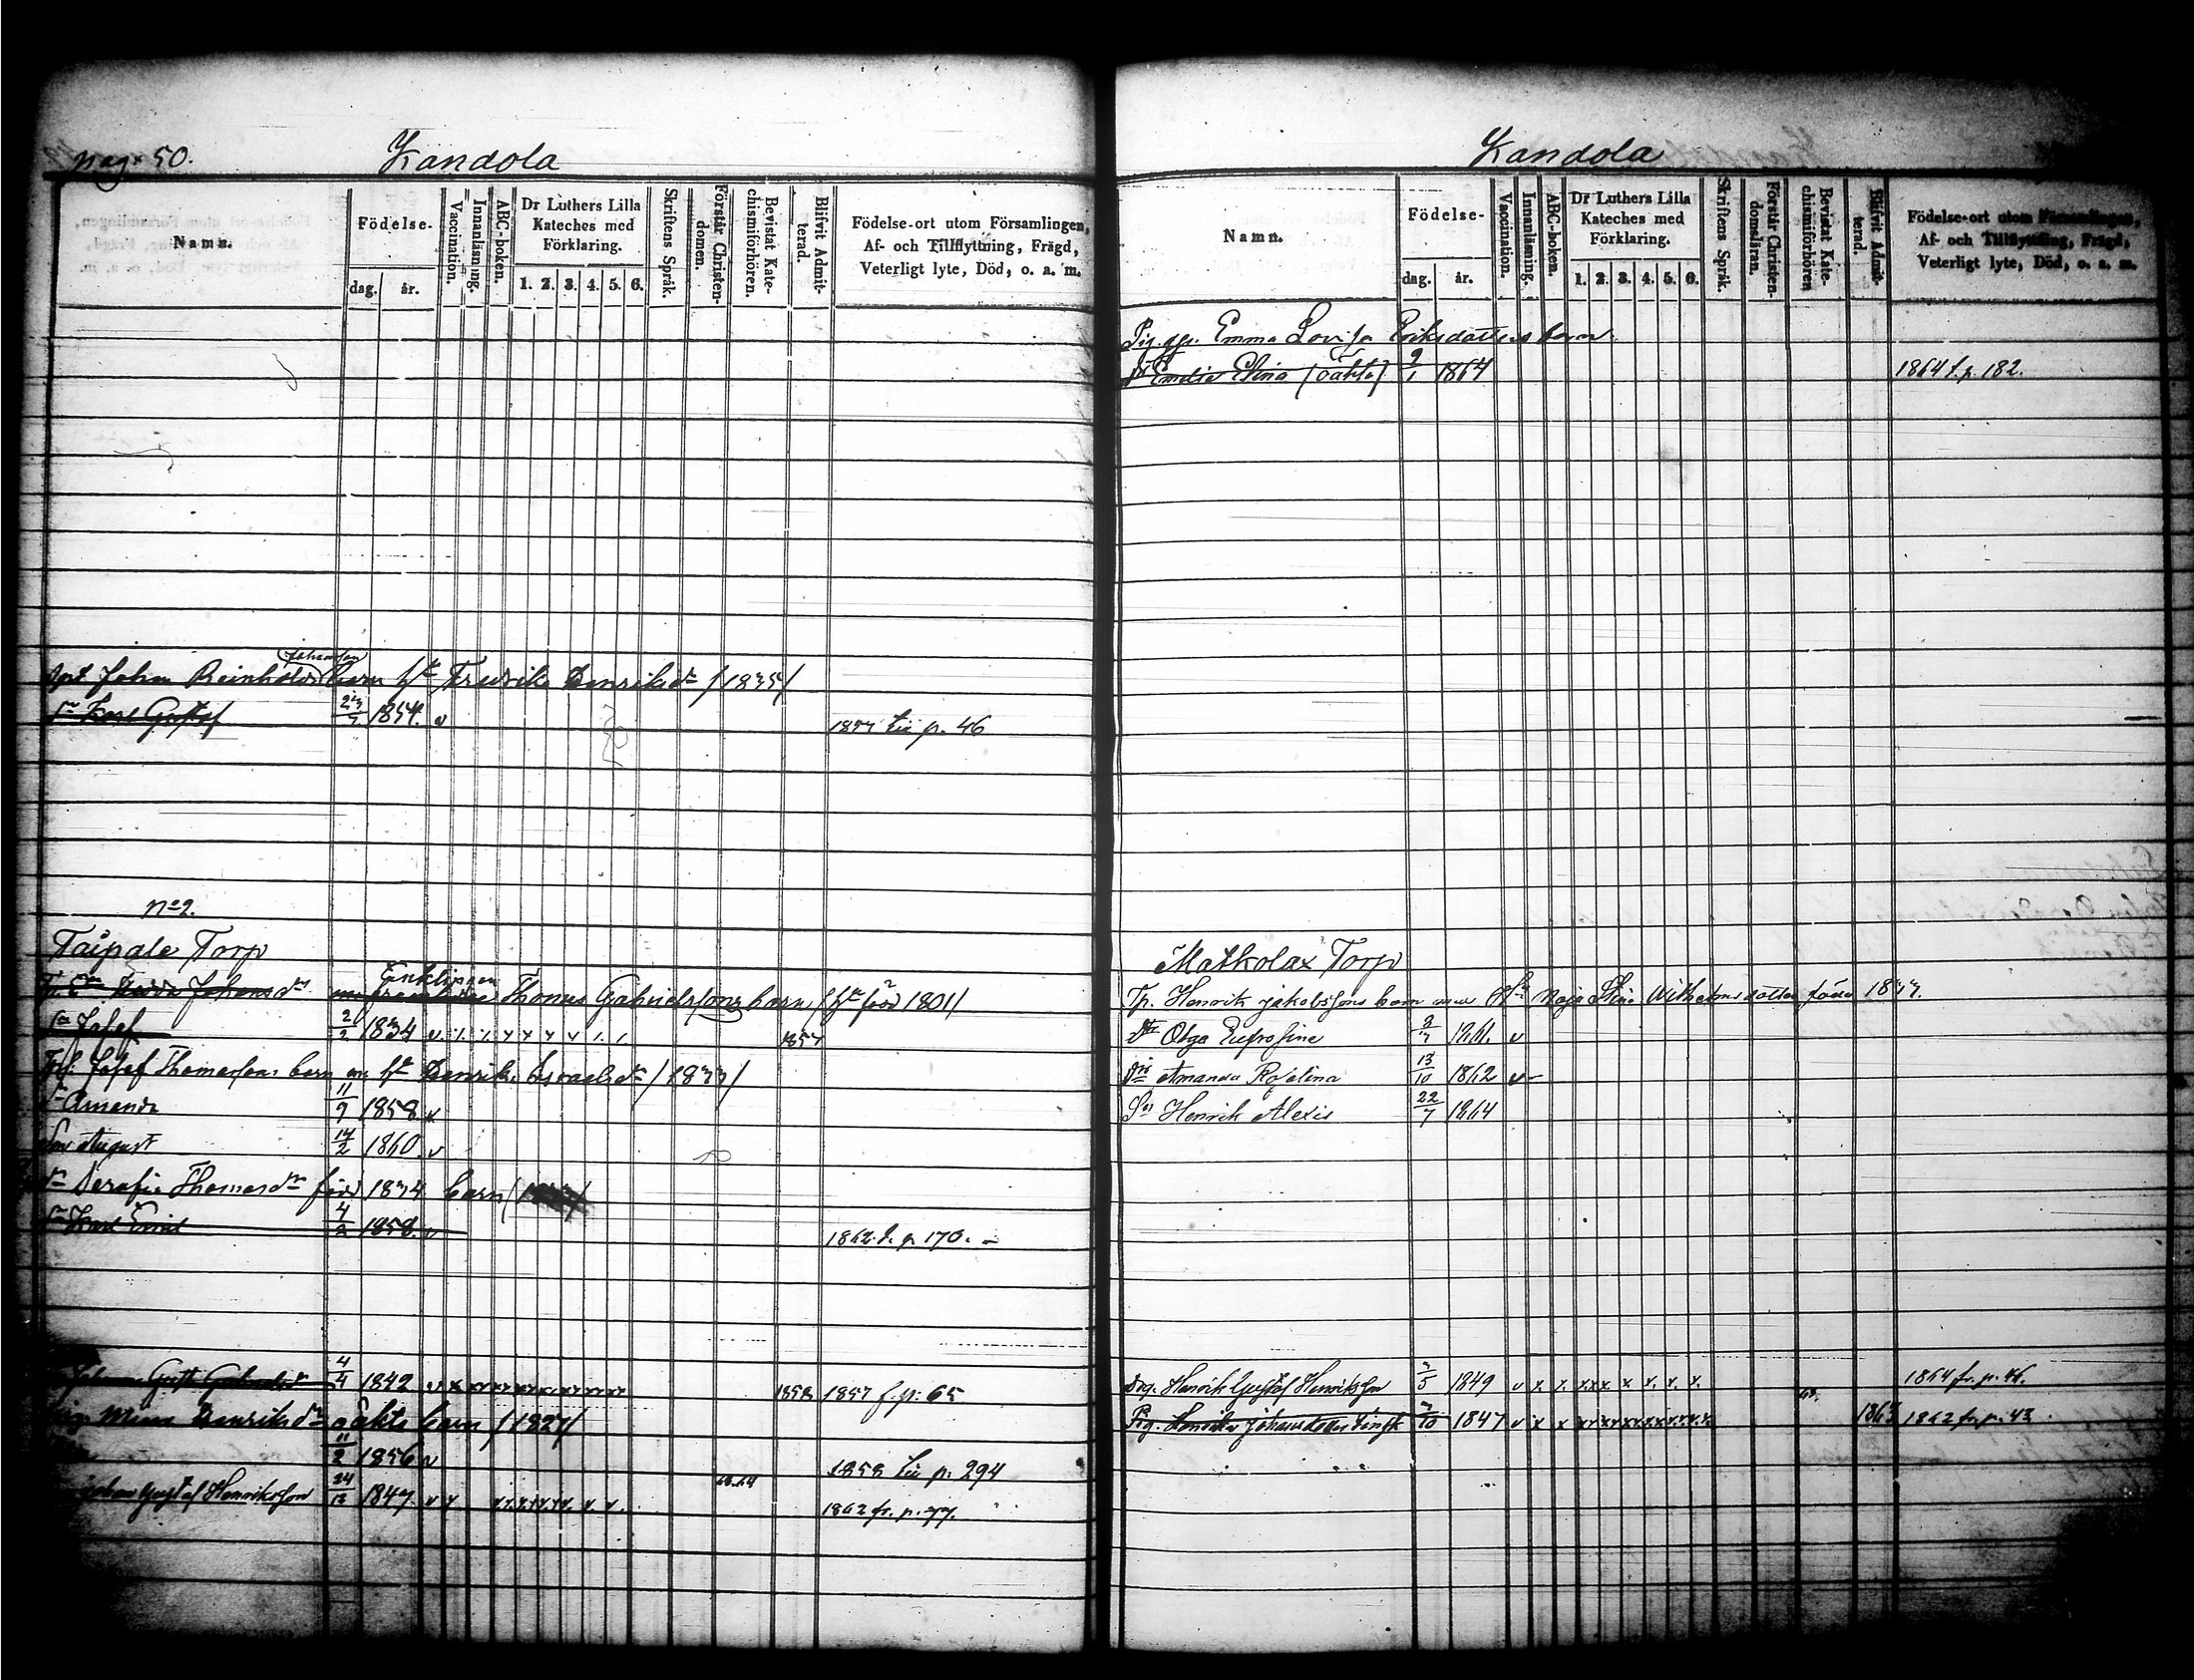 pag. 50. Kandola
Namn.
Födelse-
dag. år.
Vaccination.
Innanläsning.
ABC-boken.
Dr Luthers Lilla Kateches med Förklaring.
1. 2. 3. 4. 5. 6.
Skriftens Språk.
Förstår Christen-domen.
Bevistat Kate-chismiförhören.
Blifvit Admit-terad.
Födelse-ort utom Församlingen, Af- och Tillflyttning, Frägd, Veterligt lyte, Död, o. a. m.
Johansson
Johan Reinholds barn Fredrika Henriksdr (1835)
Sn Karl Gustaf 1854. v 1857 till p. 46
No 2.
Taipale Torp
Enklingen
Johansdr Thomas Gabrielssons barn född 1801
Sn Josef 2/2 1834 1857
Josef Thomassons barn Henrika (1833)
Amanda 11/9 1858 v
Son August 14/2 1860. v
Serafia Thomasdr född 1834 barn
Sn Karl Emil 4/2 1858. v 1862. t. p 170.
Johan Gust. 4/4 1842 1858 1857 f. p. 65
Henriksdr oäkta barn (1827)
11/2 1856 v 1858 till p. 294
Johan Gustaf Henriksson 24/12 1847. v 1862 fr. p. 77.
Kandola
Namn.
Födelse-
dag. år.
Vaccination.
Innanläsning.
ABC-boken.
Dr Luthers Lilla Kateches med Förklaring.
1. 2. 3. 4. 5. 6.
Skriftens Språk.
Förstår Christen-domsläran.
Bevistat Kate-chismiförhören
Blifvit Admit-terad.
Födelse-ort utom Församlingen, Af- och Tillflyttning, Frägd, Veterligt lyte, Död, o. a. m.
Pig. Emma Lovisa Eriksdotters barn
Emelie Elina (oäkta) 9/1 1864 1864 t. p. 182.
Matkolax Torp
Tp. Henrik Jakobssons barn Maja Stina Wilhelmsdotter född 1837.
Dtr Olga Eufrosine 1861. v
Amanda Roselina 13/10 1862 v
Sn Henrik Alexis 22/7 1864
Drg. Henrik Gustaf Henriksson 1849 v 1864 fr. p. 46.
Pig. Henrika Johansdotter 1847 v 1863 1862 fr. p. 43.